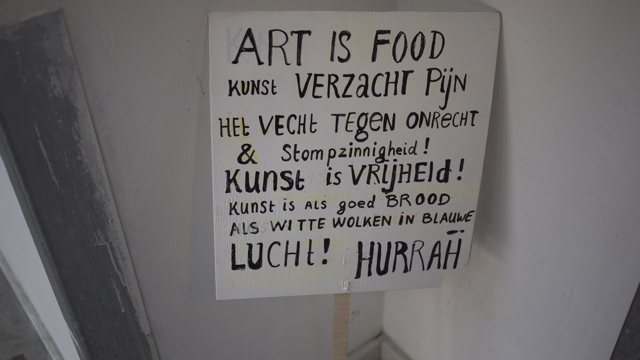 ART IS FOOD
KUNST VERZACHT PijN
HEt VECHt TEgEN ONRECHT
& Stompzinnigheid!
Kunst is VRijHEid!
KUNST is ALS goed BROOD
ALS WITTE WOLKEN iN BLAUWE
LUCHt! HURRAH